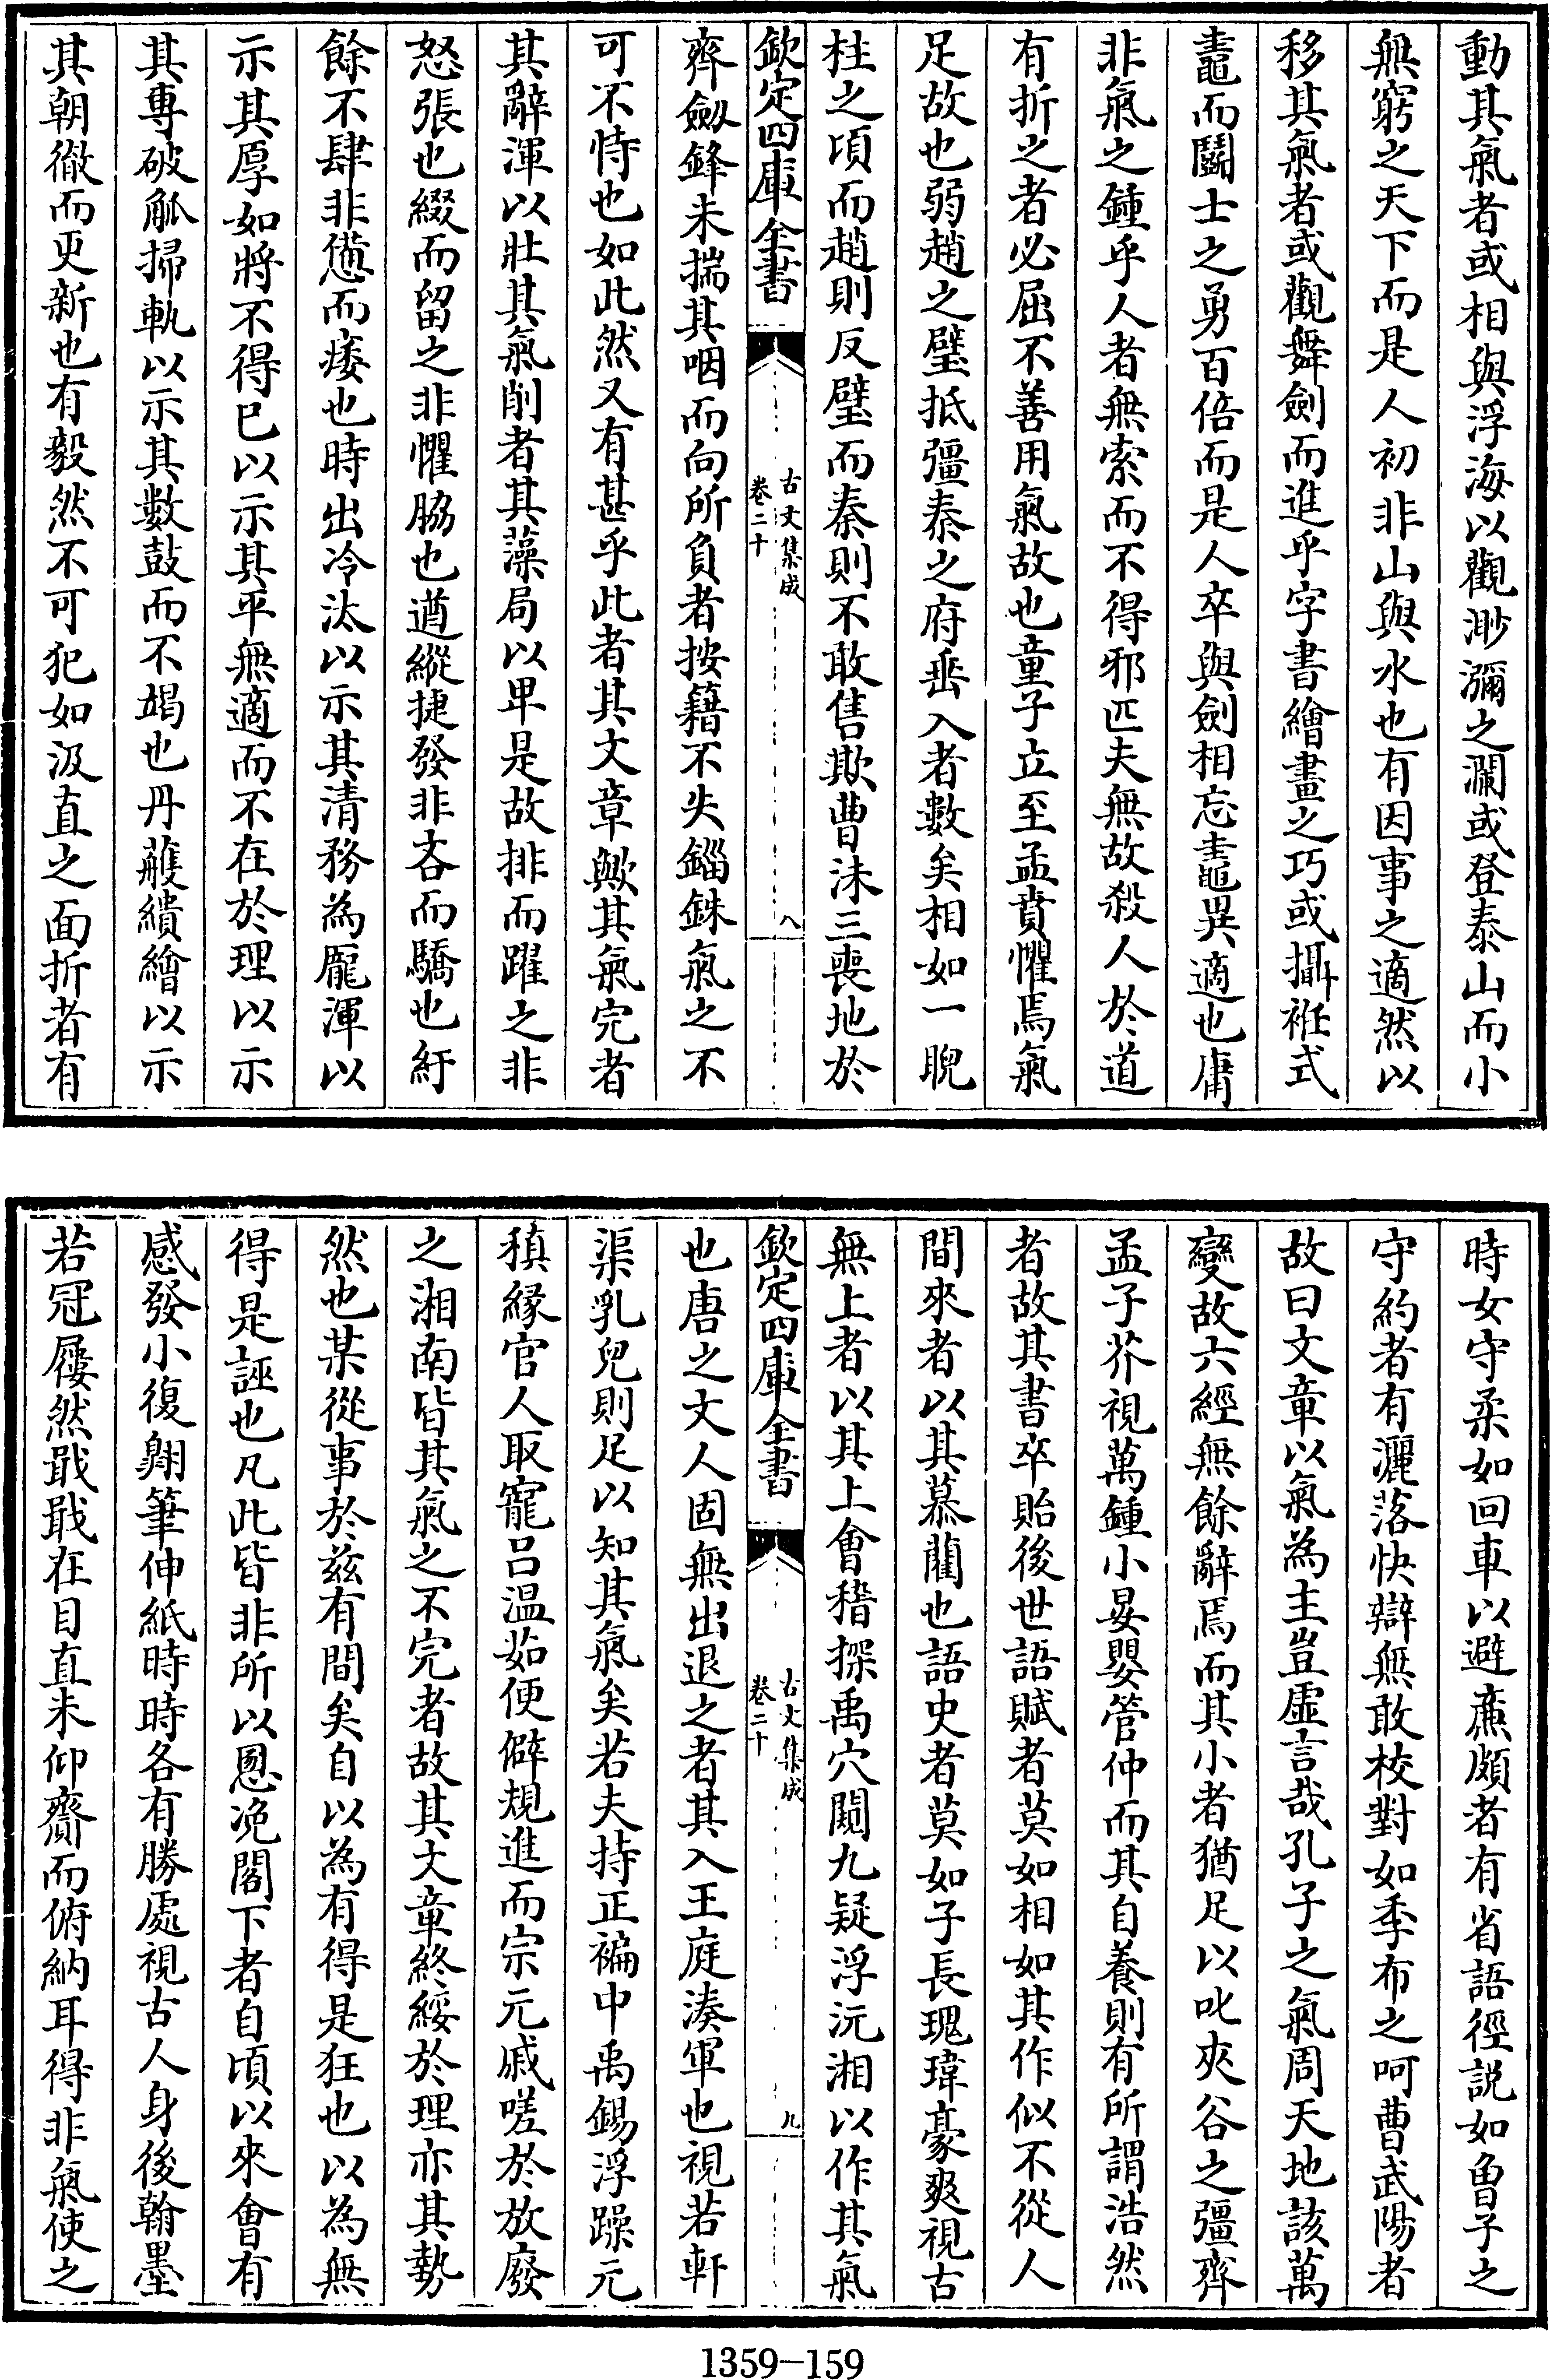 動其氣者或相與浮海以觀渺瀰之瀾或登泰山而小
無窮之天下而是人初非山與水也有因事之適然以
移其氣者或觀舞劍而進乎字書繪畫之巧或攝袵式
鼃而鬭士之勇百倍而是人卒與劍相忘鼃異適也庸
非氣之鍾乎人者無索而不得邪匹夫無故殺人於道
有折之者必屈不善用氣故也童子立至孟賁懼焉氣
足故也弱趙之璧抵彊秦之府垂入者數矣相如一睨
柱之頃而趙則反璧而秦則不敢售欺曹沬三喪地於
欽定四庫全書
古文集成
卷二十
八
齊劔鋒未揣其咽而向所負者按籍不失錙銖氣之不
可不恃也如此然又有甚乎此者其文章歟其氣完者
其辭渾以壯其氣削者其藻局以卑是故排而躍之非
怒張也綴而留之非懼脇也遒縱捷發非吝而驕也紆
餘不肆非憊而痿也時出冷汰以示其清務為厖渾以
示其厚如將不得已以示其平無適而不在於理以示
其專破觚掃軌以示其數鼓而不竭也丹雘繢繪以示
其朝徹而更新也有毅然不可犯如汲直之面折者有
時女守柔如回車以避亷頗者有省語徑説如魯子之
守約者有灑落快辯無敢校對如季布之呵曹武陽者
故曰文章以氣為主豈虛言哉孔子之氣周天地該萬
變故六經無餘辭焉而其小者猶足以叱夾谷之彊齊
孟子芥視萬鍾小晏嬰管仲而其自養則有所謂浩然
者故其書卒貽後世語賦者莫如相如其作似不從人
間來者以其慕藺也語史者莫如子長瑰瑋豪爽視古
無上者以其上會稽探禹穴闚九疑浮沅湘以作其氣
欽定四庫全書
古文集成
卷二十
九
也唐之文人固無出退之者其入王庭湊軍也視若軒
渠乳兒則足以知其氣矣若夫持正褊中禹錫浮躁元
稹緣官人取寵呂温茹便僻規進而宗元戚嗟於放廢
之湘南皆其氣之不完者故其文章終餒於理亦其勢
然也某從事於兹有間矣自以為有得是狂也以為無
得是誣也凡此皆非所以慁凂閣下者自頃以來會有
感發小復翺筆伸紙時時各有勝處視古人身後翰墨
若冠屨然戢戢在目直未仰齎而俯納耳得非氣使之
1359—159